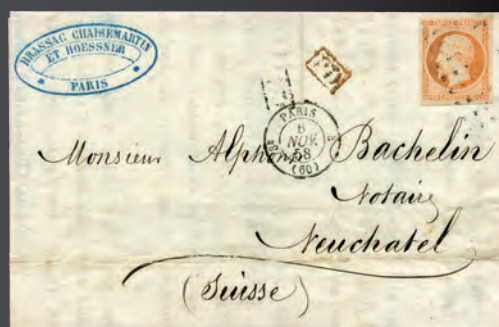 BRASSAC CHAISEMARTIN
ET HOESSNER
PARIS
P.D.
PARIS
6
NOV.
58
(60)
Monsieur Alphonse Bachelin
Notaire
Neuchatel
(Suisse)